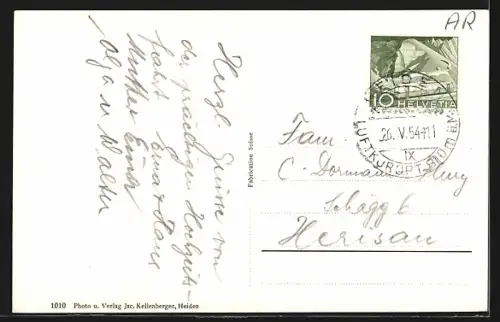 AR
Herzl. Grüsse von
der prächtigen Hochzeits-
fahrt Erna & Hans
Mutter Emma
Olga u Walter
Fabrication Suisse
10 HELVETIA
HEIDEN
26. V. 54-11
IX
LUFTKURORT 810 m
Fam.
C. Dormann
Herisau
1010 Photo u. Verlag Jac. Kellenberger, Heiden